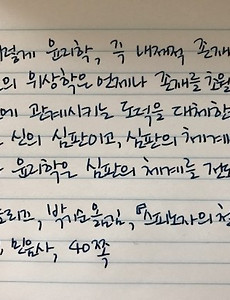 이렇게 윤리학, 즉 내재적 존재
의 위상학은 언제나 존재를 초월
에 관계시키는 도덕을 대체한
신의 심판이고, 심판의 체계
윤리학은 심판의 체계를 전도
박기순 옮김, 『스피노자의 철
민음사, 40쪽